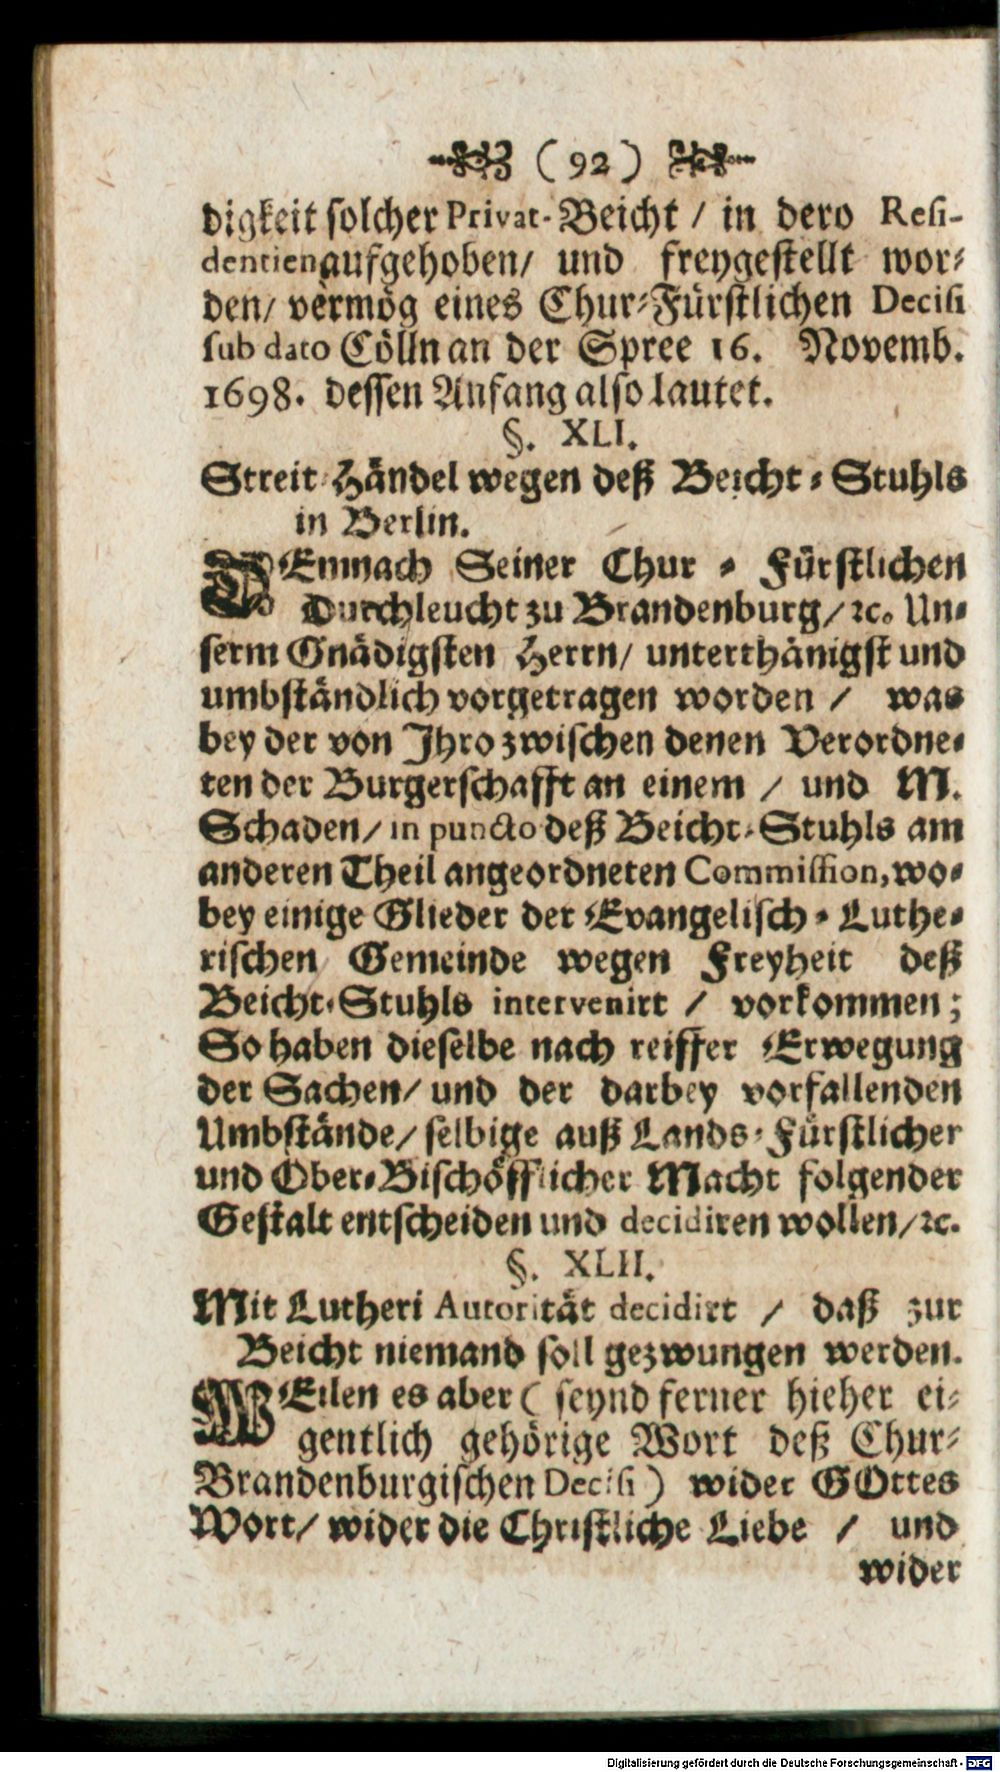 ( 92 )
digkeit solcher Privat-Beicht / in dero Resi-
dentien aufgehoben / und freygestellt wor-
den / vermög eines Chur-Fürstlichen Decisi
sub dato Cölln an der Spree 16. Novemb.
1698. dessen Anfang also lautet.
§. XLI.
Streit-Händel wegen deß Beicht-Stuhls
in Berlin.
DEmnach Seiner Chur-Fürstlichen
Durchleucht zu Brandenburg / ꝛc. Un-
serm Gnädigsten Herrn / unterthänigst und
umbständlich vorgetragen worden / was
bey der von Ihro zwischen denen Verordne-
ten der Burgerschafft an einem / und M.
Schaden / in puncto deß Beicht-Stuhls am
anderen Theil angeordneten Commission, wo-
bey einige Glieder der Evangelisch-Luthe-
rischen Gemeinde wegen Freyheit deß
Beicht-Stuhls intervenirt / vorkommen;
So haben dieselbe nach reiffer Erwegung
der Sachen / und der darbey vorfallenden
Umbstände / selbige auß Lands-Fürstlicher
und Ober-Bischöfflicher Macht folgender
Gestalt entscheiden und decidiren wollen / ꝛc.
§. XLII.
Mit Lutheri Autorität decidirt / daß zur
Beicht niemand soll gezwungen werden.
WEilen es aber ( seynd ferner hieher ei-
gentlich gehörige Wort deß Chur-
Brandenburgischen Decisi ) wider GOttes
Wort / wider die Christliche Liebe / und
wider
Digitalisierung gefördert durch die Deutsche Forschungsgemeinschaft - DFG